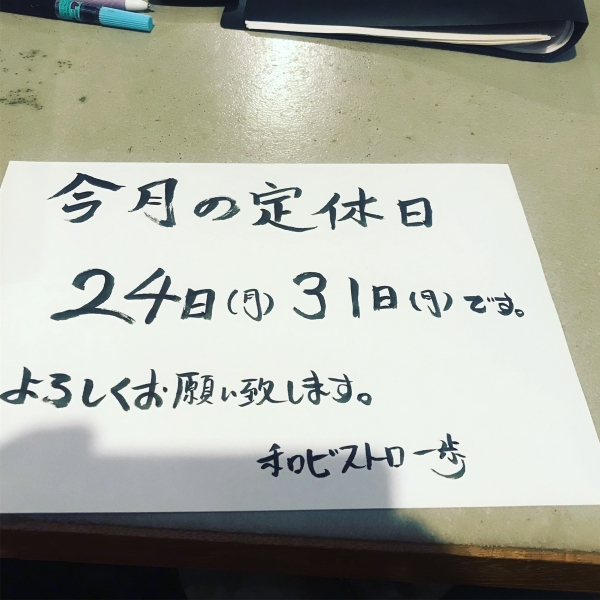 今月の定休日
24日(月)31日(月)です。
よろしくお願い致します。
和ビストロ一歩